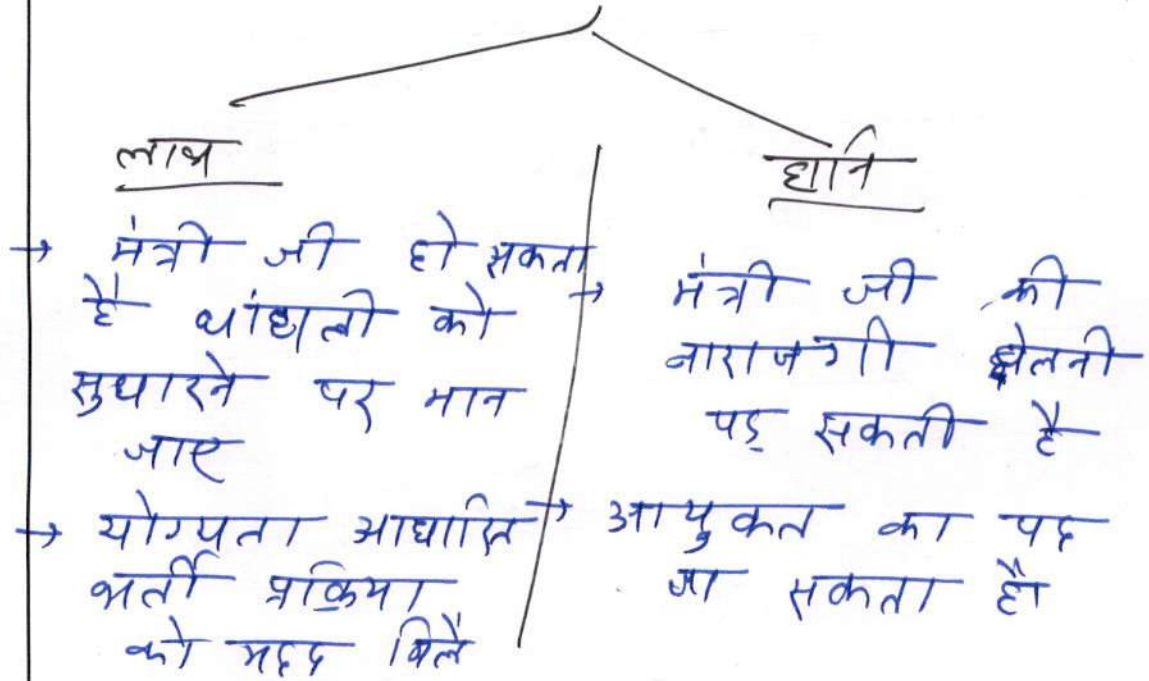 लाभ
→ मंत्री जी हो सकता
है धांधली को
सुधारने पर मान
जाए
→ योग्यता आधारित
भर्ती प्रक्रिया
को मदद मिले
हानि
→ मंत्री जी की
नाराजगी झेलनी
पड़ सकती है
→ आयुक्त का पद
जा सकता है